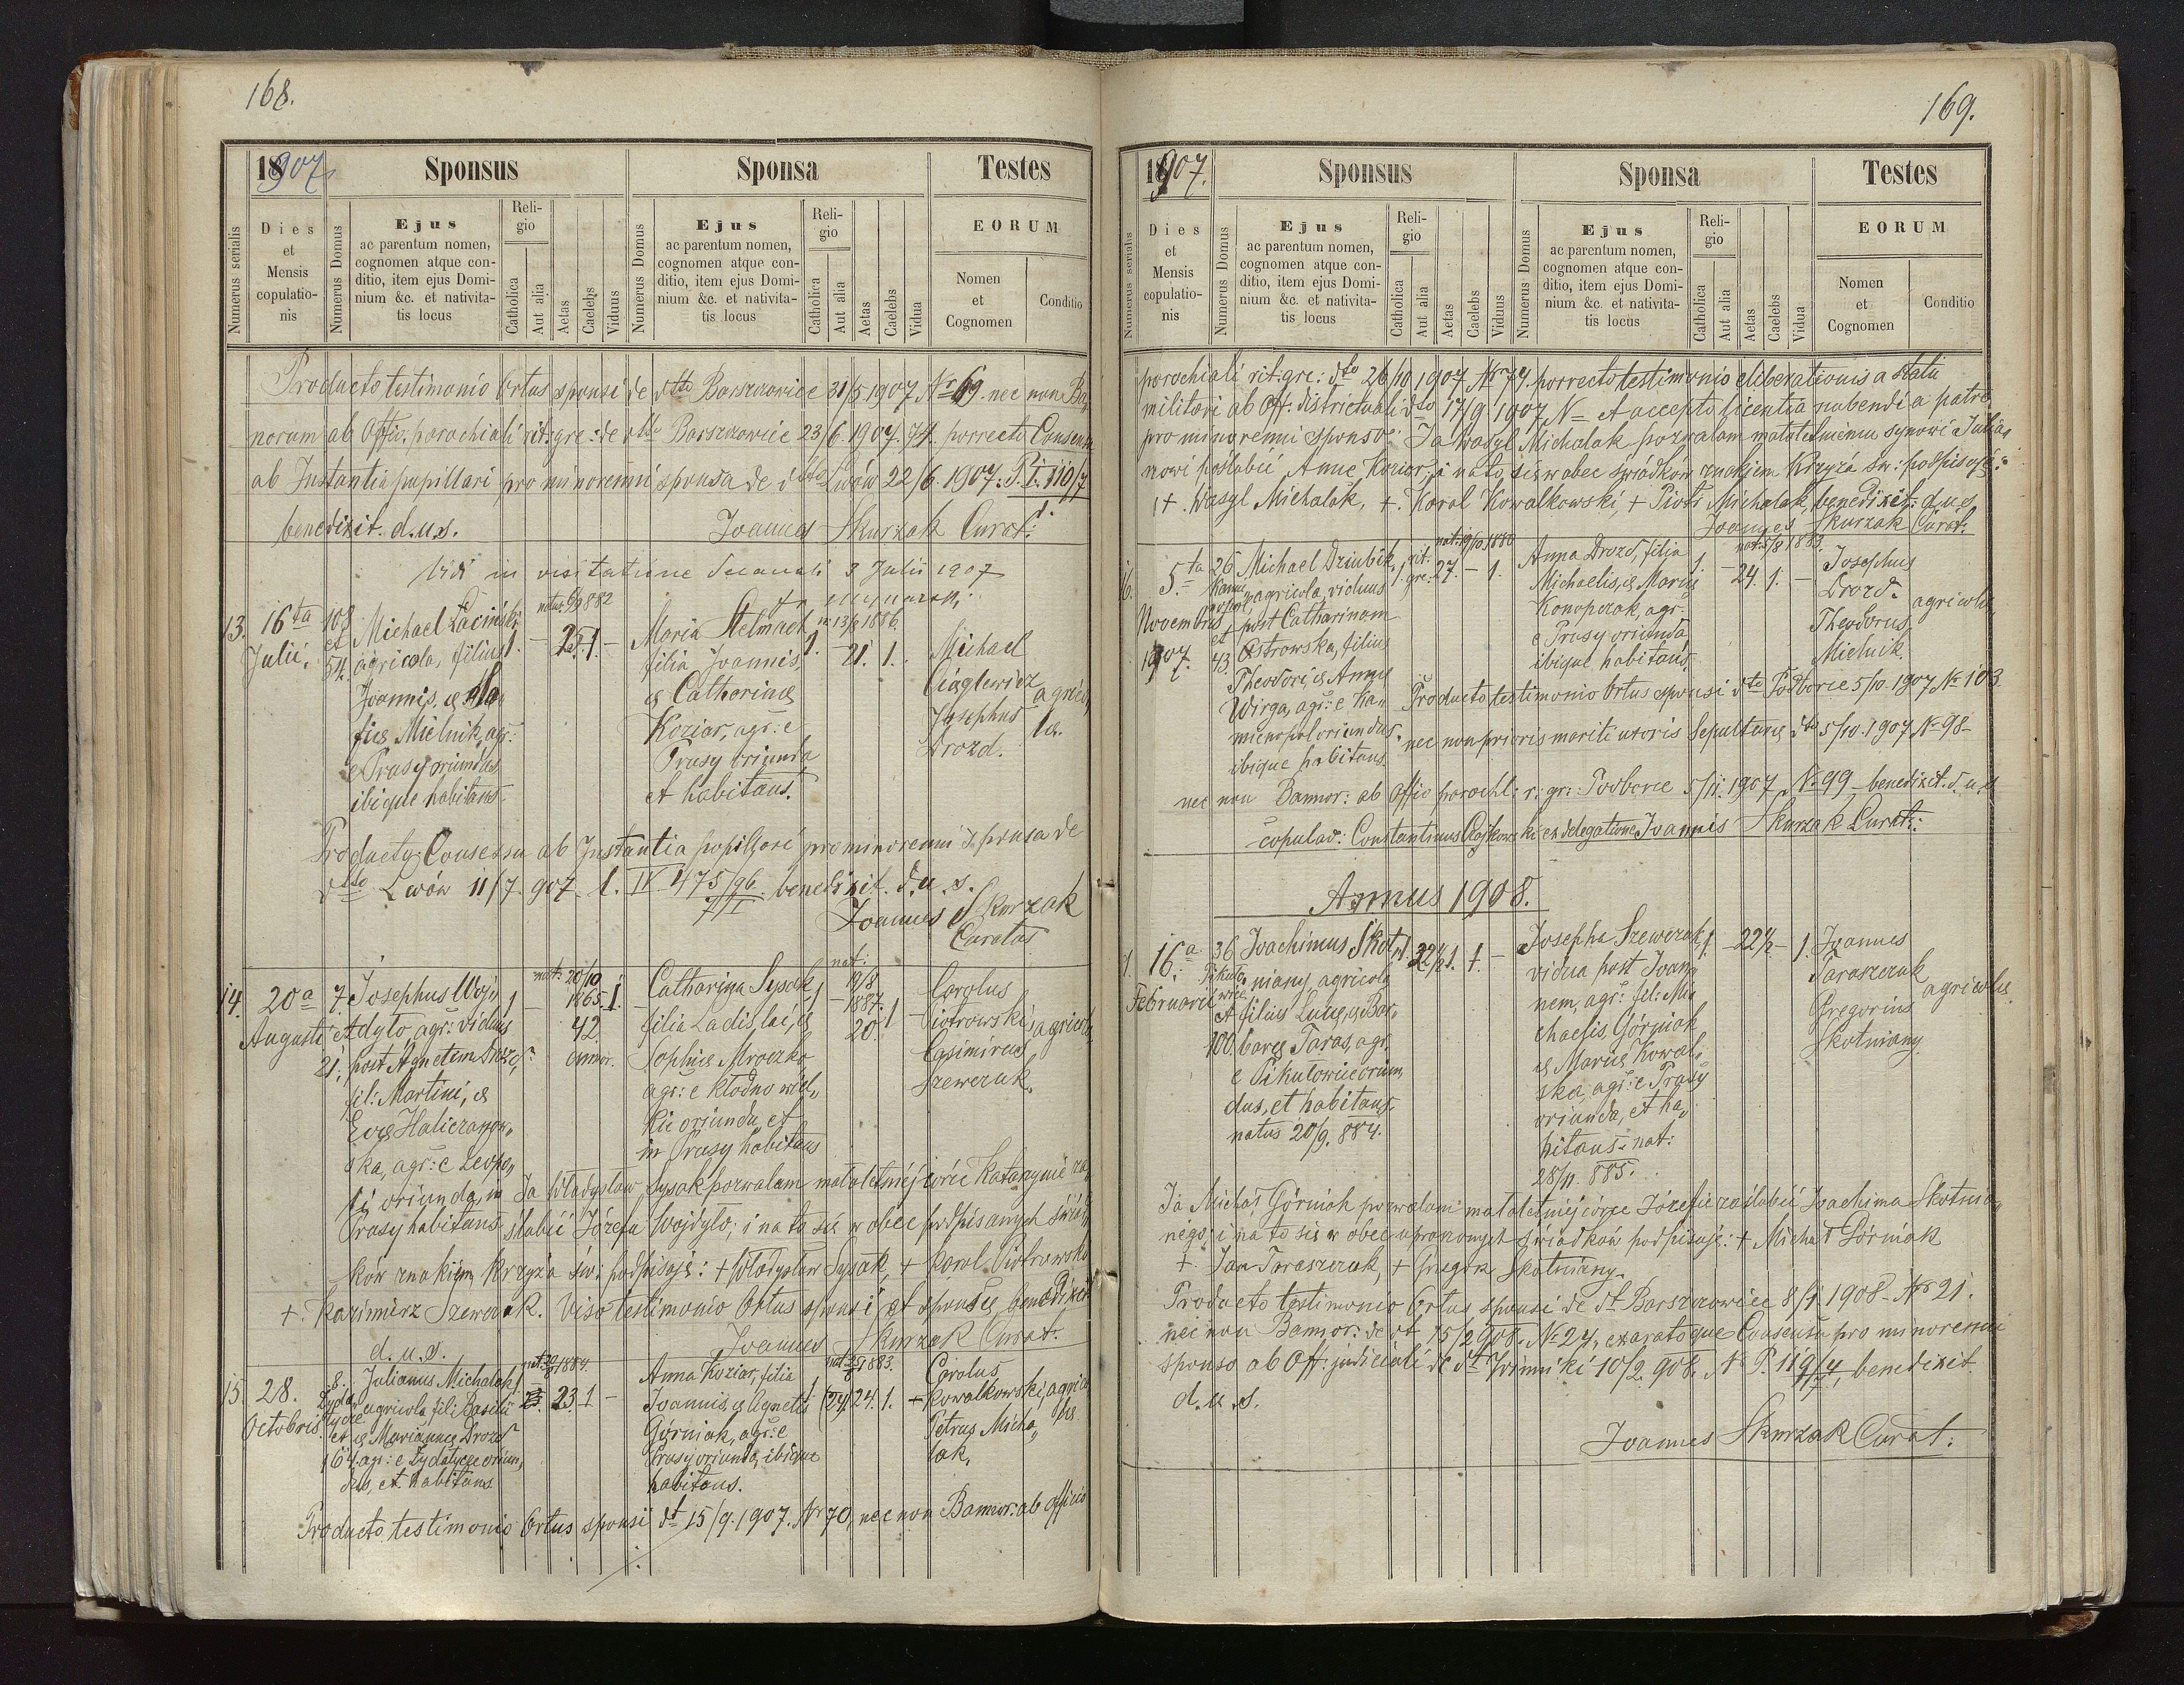 168.
18907
Sponsus
Sponsa
Testes
Numerus serialis
Dies
et
Mensis
copulatio-
nis
Numerus Domus
Ejus
ac parentum nomen,
cognomen atque con-
ditio, item ejus Domi-
nium &c. et nativita-
tis locus
Reli-
gio
Catholica
Aut alia
Aetas
Caelebs
Viduus
Numerus Domus
Ejus
ac parentum nomen,
cognomen atque con-
ditio, item ejus Domi-
nium &c. et nativita-
tis locus
Reli-
gio
Catholica
Aut alia
Aetas
Caelebs
Vidua
EORUM
Nomen
et
Cognomen
Conditio
Producto testimonio Ortus sponsi de dtto Barszczowice 31/5 1907 Nr 69. nec non Ba,,
norum ab Offic. parochiali rit. gre: de dtto Barszczowice 23/6. 1907. 74. porrecto Consensu
ab Instantia pupillari pro minorenni sponsa de dtto Lwów 22/6. 1907. P. I. 110/7
benedixit. d.u.s. Joannes Skurzak Curat:
Vidi in visitatione decanali 3 Julii 1907
13. 16ta Julii,
108 et 54.
Michael Łaciński,
agricola, filius
Joannis, & Ma,,
riæ Mielnik, agr:
e Prasy oriundus,
ibique habitans.
natus 6/9 882
1. - 25. 1. -
Maria Stelmach,
filia Joannis,
& Catharinæ
Koziar, agr: e
Prasy oriunda
et habitans.
n. 13/8 1886.
1. - 21. 1.
Michael
Ciąglewicz
Josephus
Drozd.
agrico,,
læ.
Producto Consensu ab Instantia pupillari pro minorenni sponsa de
dtto Lwów 11/7. 907. l. IV 475/96 benedixit. d.u.s.
7/I
Joannes Skurzak
Curatus
14. 20a Augusti
7. et 21.
Josephus Woj,,
dyło, agr: viduus
post Agnetem
fil: Martini, &
Evæ Haliczanow,,
ska, agr: e Leopo,,
li oriunda, in
Prasy habitans
nat: 20/10
1865
1 - 42 1.
annor.
Catharina Sysak,
filia Ladislai, &
Sophiæ Mroczko
agr: e Kłodno wiel,,
kie oriunda, et
in Prasy habitans
nat:
19/8
1887.
1 - 20. 1
Carolus
Piotrowski,
Casimirus
Szewczuk.
agricolæ
Ja Władysław Sysak pozwalam małoletniéj córce Katarzynie za,,
ślubić Józefa Wojdyło; i na to się w obec podpisanych świad,,
ków znakiem Krzyża św: podpisuję: + Władysław Sysak, + Karol Piotrowski
+. Kazimirz Szewczuk. Viso testimonio Ortus sponsi et sponsæ benedixit
d.u.s. Joannes Skurzak Curat:
15. 28. Octobris
8. Zyda,,
tycze
et
164.
Julianus Michalak,
agricola, fil: Basilii
& Mariannæ Drozd
agr: e Zydatycze oriun,,
dus, et habitans
1. 23. 1 -
Anna Koziar, filia
Joannis, & Agnetis
Górniak, agr: e
Prasy oriunda, ibique
habitans.
1. (24) 24. 1. -
Carolus
Kowalkowski,
Petrus Micha,,
lak,
agrico
læ
Producto testimonio Ortus sponsi dt 15/9. 1907. Nr 70, nec non Bannor: ab officio
169.
18907.
Sponsus
Sponsa
Testes
Numerus serialis
Dies
et
Mensis
copulatio-
nis
Numerus Domus
Ejus
ac parentum nomen,
cognomen atque con-
ditio, item ejus Domi-
nium &c. et nativita-
tis locus
Reli-
gio
Catholica
Aut alia
Aetas
Caelebs
Viduus
Numerus Domus
Ejus
ac parentum nomen,
cognomen atque con-
ditio, item ejus Domi-
nium &c. et nativita-
tis locus
Reli-
gio
Catholica
Aut alia
Aetas
Caelebs
Vidua
EORUM
Nomen
et
Cognomen
Conditio
parochiali rit. gre: dto 26/10 1907. Nr 74. porrecto testimonio eliberationis a statu
militari ab Off: districtuali dto 17/9 1907 N= et accepto licentia nubendi a patre
pro minorenni sponso: Ja Wasyl Michalak pozwalam małoletniemu synowi Julia,,
nowi poślubić Annę Koziar, i na to się w obec świadków znakiem Krzyża św: podpisuję:
+. Wasyl Michalak, +. Karol Kowalkowski, + Piotr Michalak, benedixit. d.u.s.
Joannes Skurzak Curat.
16. 5ta Novembris 1907.
26 et 43.
Michael Dziubik,
agricola, viduus
post Catharinam
Ostrowska, filius
Theodori, & Annæ
Wirga, agr: e Ka,,
mienopol oriundus
ibique habitans.
nat: 19/10 1880
1. rit. gre: 27. - 1.
Anna Drozd, filia
Michaelis, & Mariæ
Konopczak, agr:
e Prasy oriunda,
ibique habitans.
nat: 5/8 1883.
1. - 24. 1. -
Josephus
Drozd.
Theodorus
Mielnik.
agricolæ
Producto testimonio Ortus sponsi dto Podborce 5/10. 1907 Nr 103.
nec non prioris mariti uxoris Sepulturæ dto 5/10. 1907 Nr 98-
nec non Bannor: ab Offic parochl: r: gr: Podborce 5/11. 1907 Nr. 99, benedixit. d.u.s
copulav: Constantinus ex delegatione Joannis Skurzak Curat:
Annus 1908.
1. 16.a Februarii
36 Pikuło,,
wice
et
100.
Joachimus Skot,,
niany, agricola
filius Lucæ, & Bar,,
baræ Taras, agr.
e Pikułowice oriun,,
dus, et habitans,
natus 20/9. 884.
Josepha Szewczuk,
vidua post Joan,,
nem, agr: fil: Mi,,
chaelis Górniak
& Mariæ Kowal,,
ska, agr: e Prasy
oriunda, et ha,,
bitans: nat:
28/11 885.
1. - 22 1/2 - 1.
Joannes
Taraszczuk
Gregorius
Skotniany
agricolæ.
Ja Michał Górniak pozwalam małoletniéj córce Józefie zaślubić Joachima Skotnia,,
nego, i na to się w obec uproszonych świadków podpisuję: + Michał Górniak
+. Jan Taraszczuk, + Grzegorz Skotniany.
Producto testimonio Ortus sponsi de dt Barszczowice 8/1. 1908. Nr 21.
nec non Bannor: de dt. 15/2 908. Nr 24, exaratoque Consensu pro minorenni
sponso ab Off: judiciali de dtt Winniki 10/2. 908. N P. 119/7, benedixit
d.u.s.
Joannes Skurzak Curat: